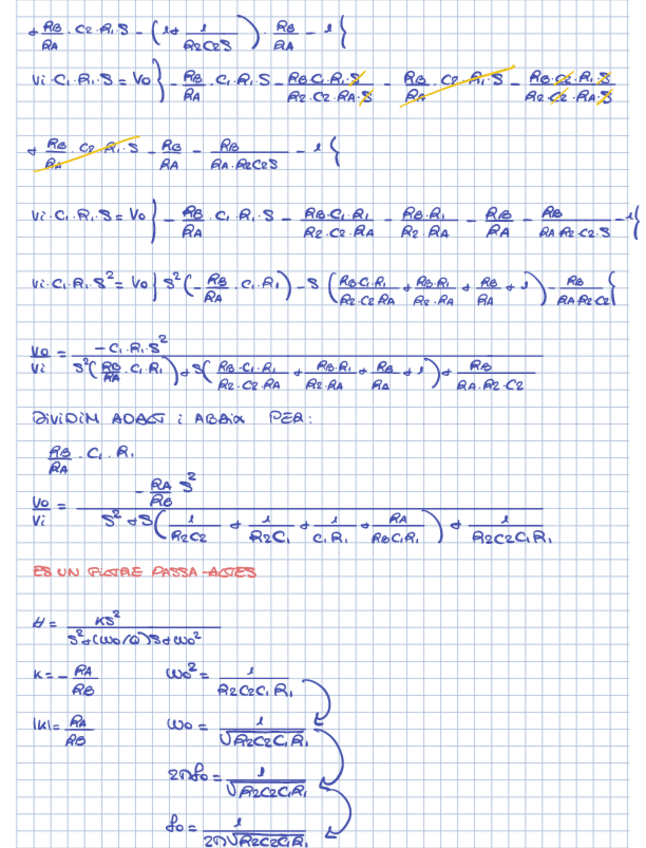 + RB/RA · C2 · R1 S - (1 + 1/R2C2S) · RB/RA - 1 {
Vi · C1 · R1 · S = Vo } - RB/RA · C1 · R1 S - RB C1 R1 · S / R2 · C2 · RA · S - RB/RA · C2 · R1 · S - RB · C2 · R1 · S / R2 · C2 · RA · S
+ RB/RA · C2 · R1 · S - RB/RA - RB / RA · R2C2S - 1 {
Vi · C1 · R1 · S = Vo } - RB/RA · C1 · R1 · S - RB · C1 · R1 / R2 · C2 · RA - RB · R1 / R2 · RA - RB/RA - RB / RA R2 · C2 · S - 1 {
Vi · C1 · R1 S² = Vo } S² (- RB/RA · C1 · R1) - S (RB C1 R1 / R2 · C2 RA + RB · R1 / R2 · RA + RB/RA + 1) - RB / RA R2 C2 {
Vo/Vi = - C1 · R1 · S² / S² (RB/RA · C1 · R1) + S (RB · C1 · R1 / R2 · C2 · RA + RB · R1 / R2 · RA + RB/RA + 1) + RB / RA · R2 · C2
DIVIDIM ADALT i ABAIX PER:
RB/RA · C1 · R1
Vo/Vi = - RA/RB S² / S² + S (1/R2C2 + 1/R2C1 + 1/C1R1 + RA/RBC1R1) + 1/R2C2C1R1
ES UN FILTRE PASSA-ALTES
H = KS² / S² + (ωo/Q)S + ωo²
K = - RA/RB ωo² = 1/R2C2C1R1
|K| = RA/RB ωo = 1/√R2C2C1R1
2πfo = 1/√R2C2C1R1
fo = 1/2π√R2C2C1R1